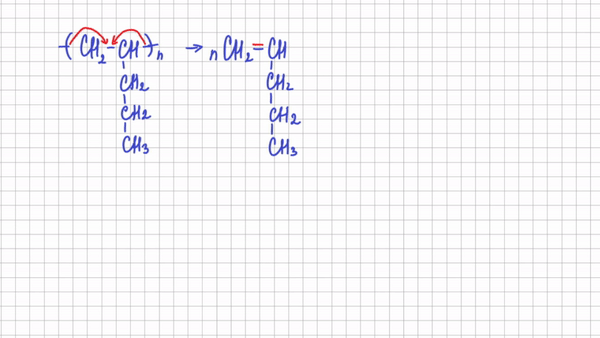 -(CH₂-CH-)ₙ → nCH₂=CH
CH₂ CH₂
CH₂ CH₂
CH₃ CH₃